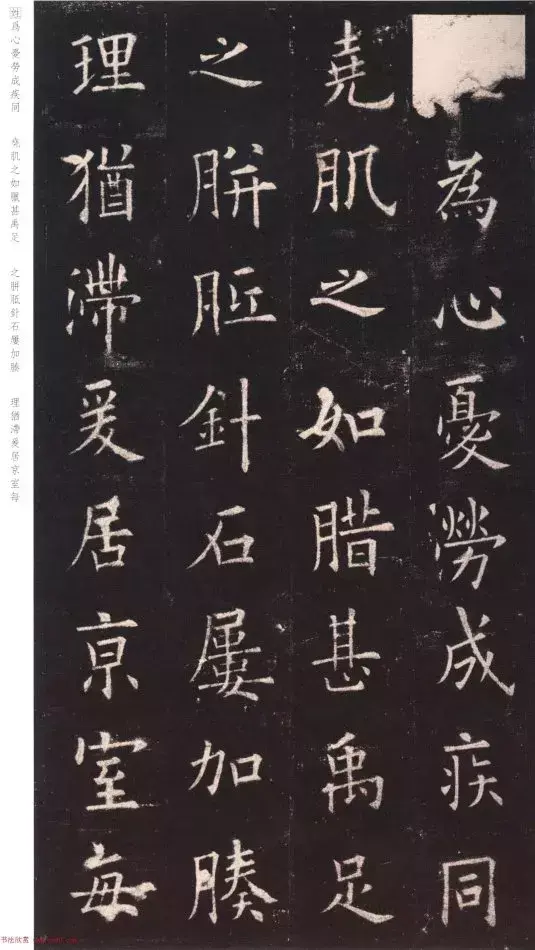 為心憂勞成疾同
堯肌之如腊甚禹足
之胼胝針石屢加腠
理猶滯爰居亰室每
姓爲心憂勞成疾同 堯肌之如臘甚禹足 之胼胝針石屢加腠 理猶滯爰居京室每
书法欣赏